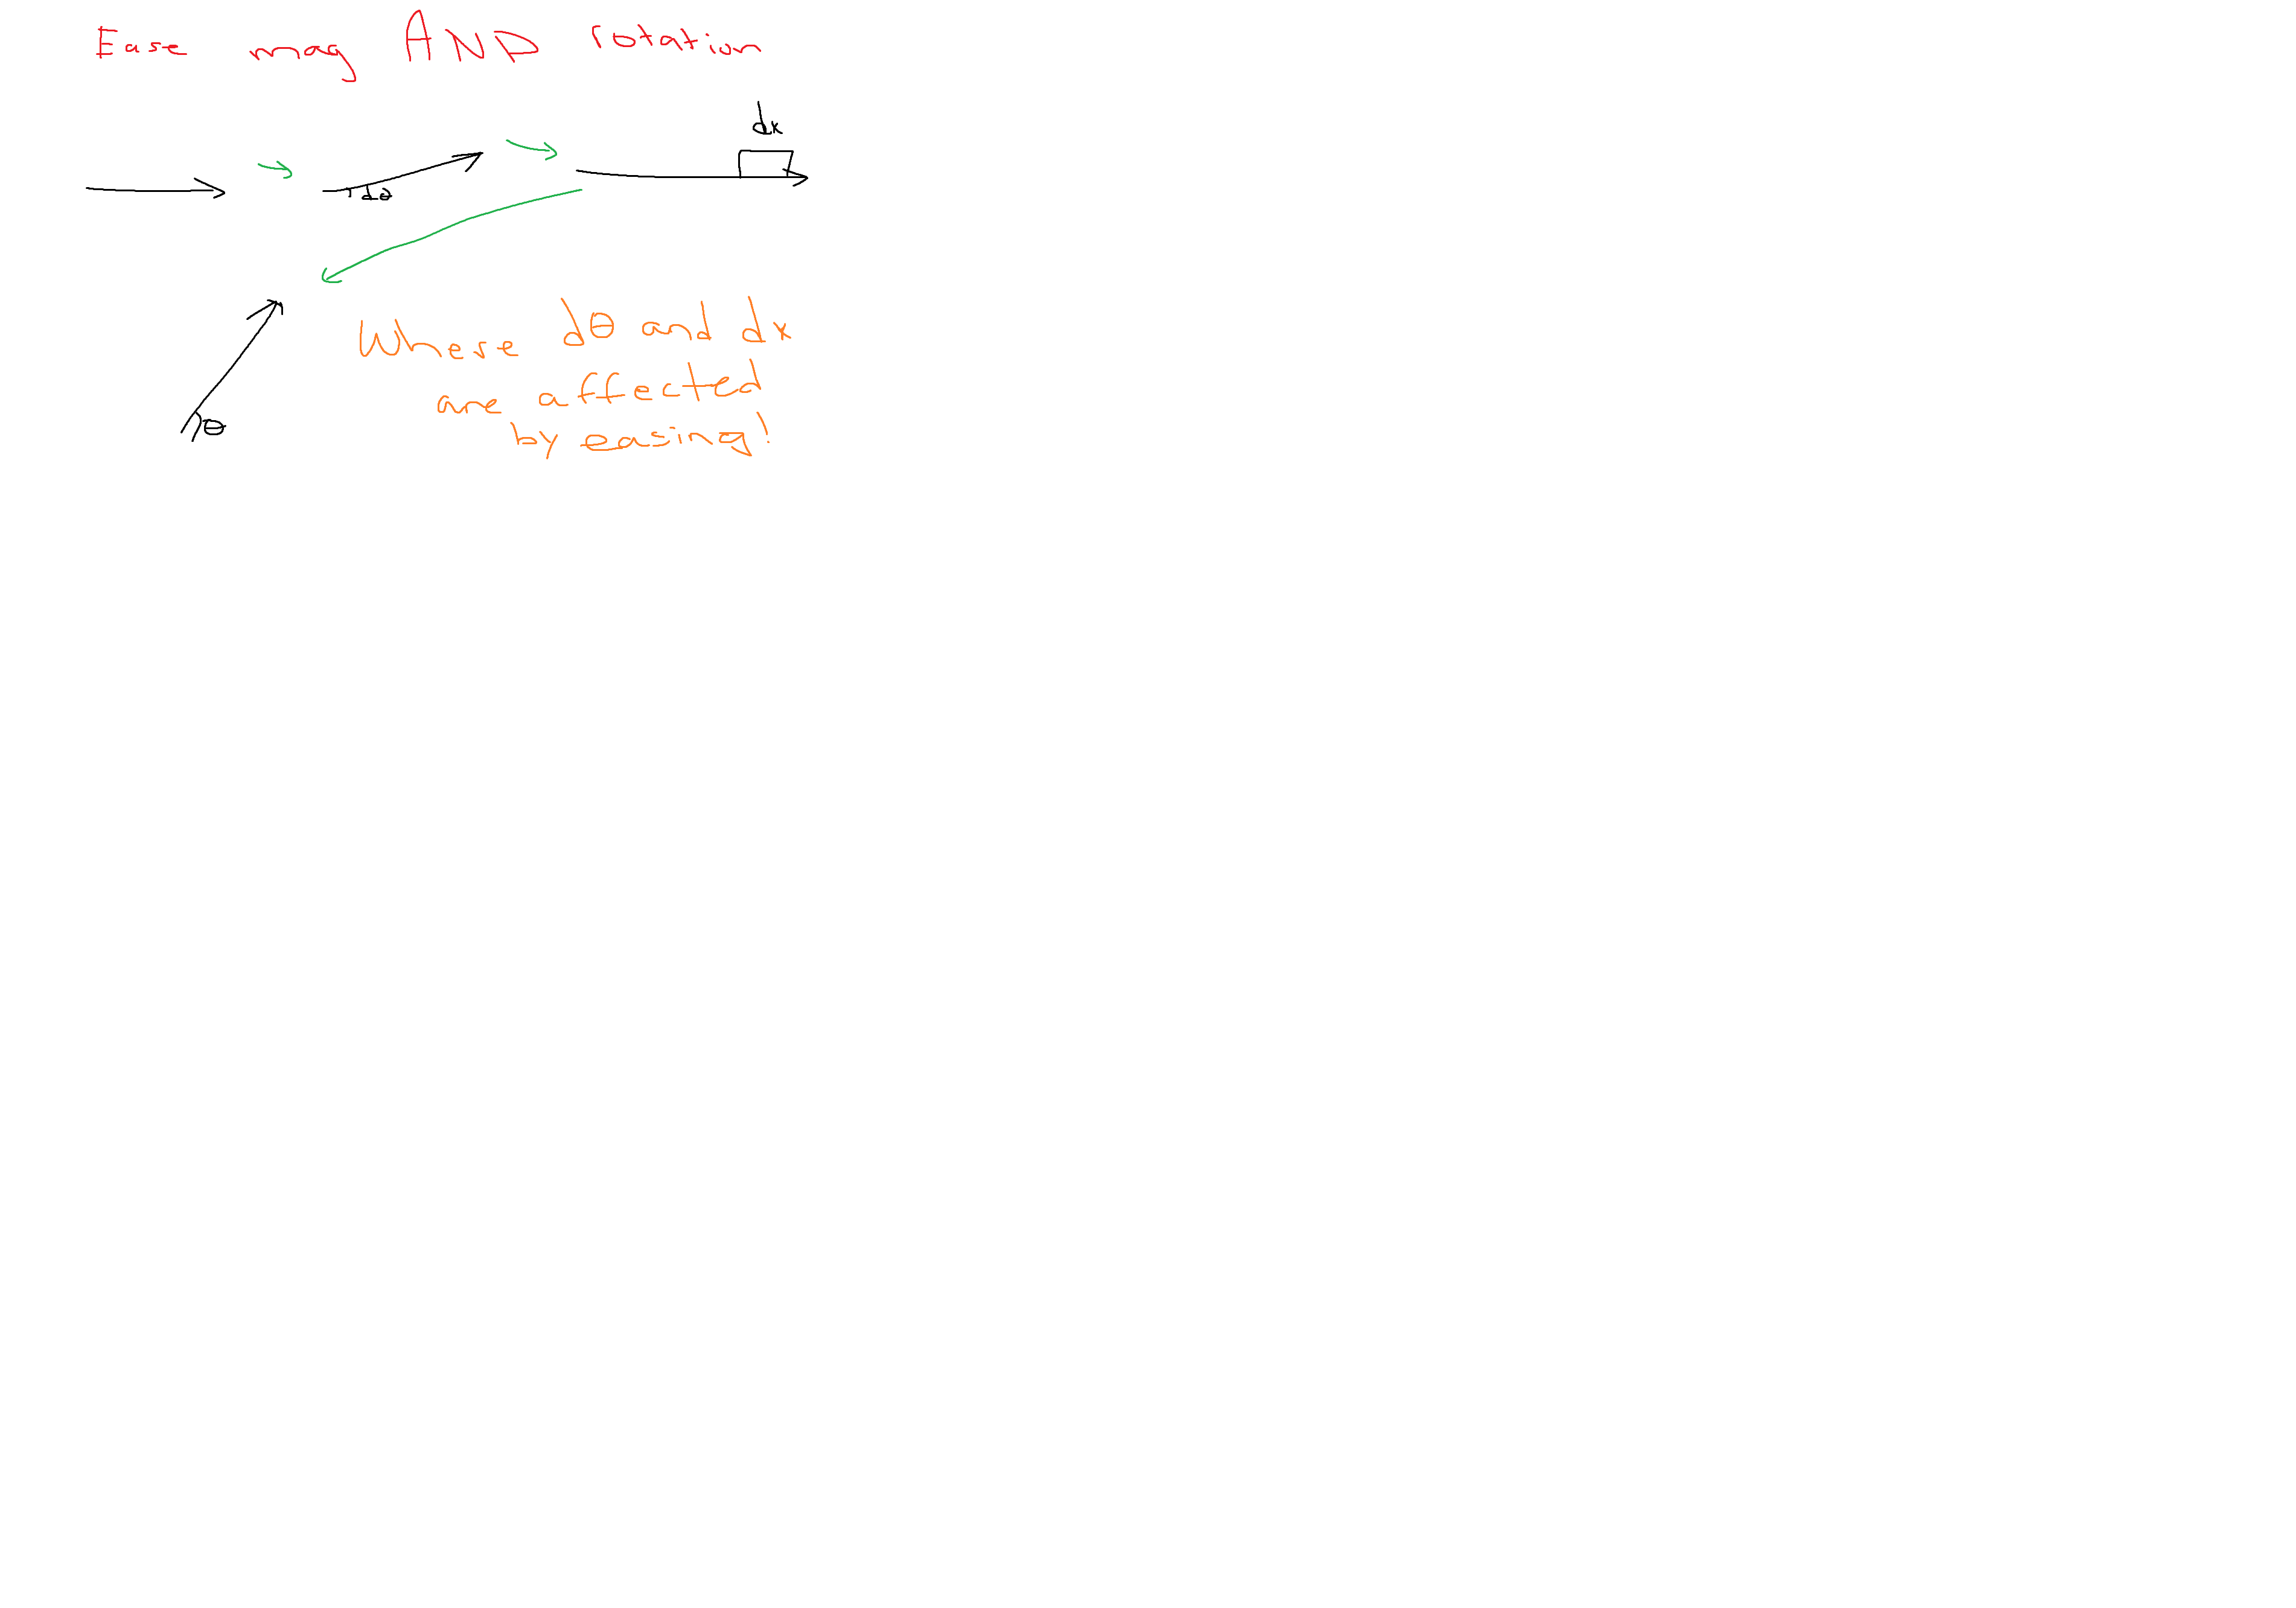 Ease mag AND rotation
dx
dθ
Where dθ and dx
are affected
by easing!
θ